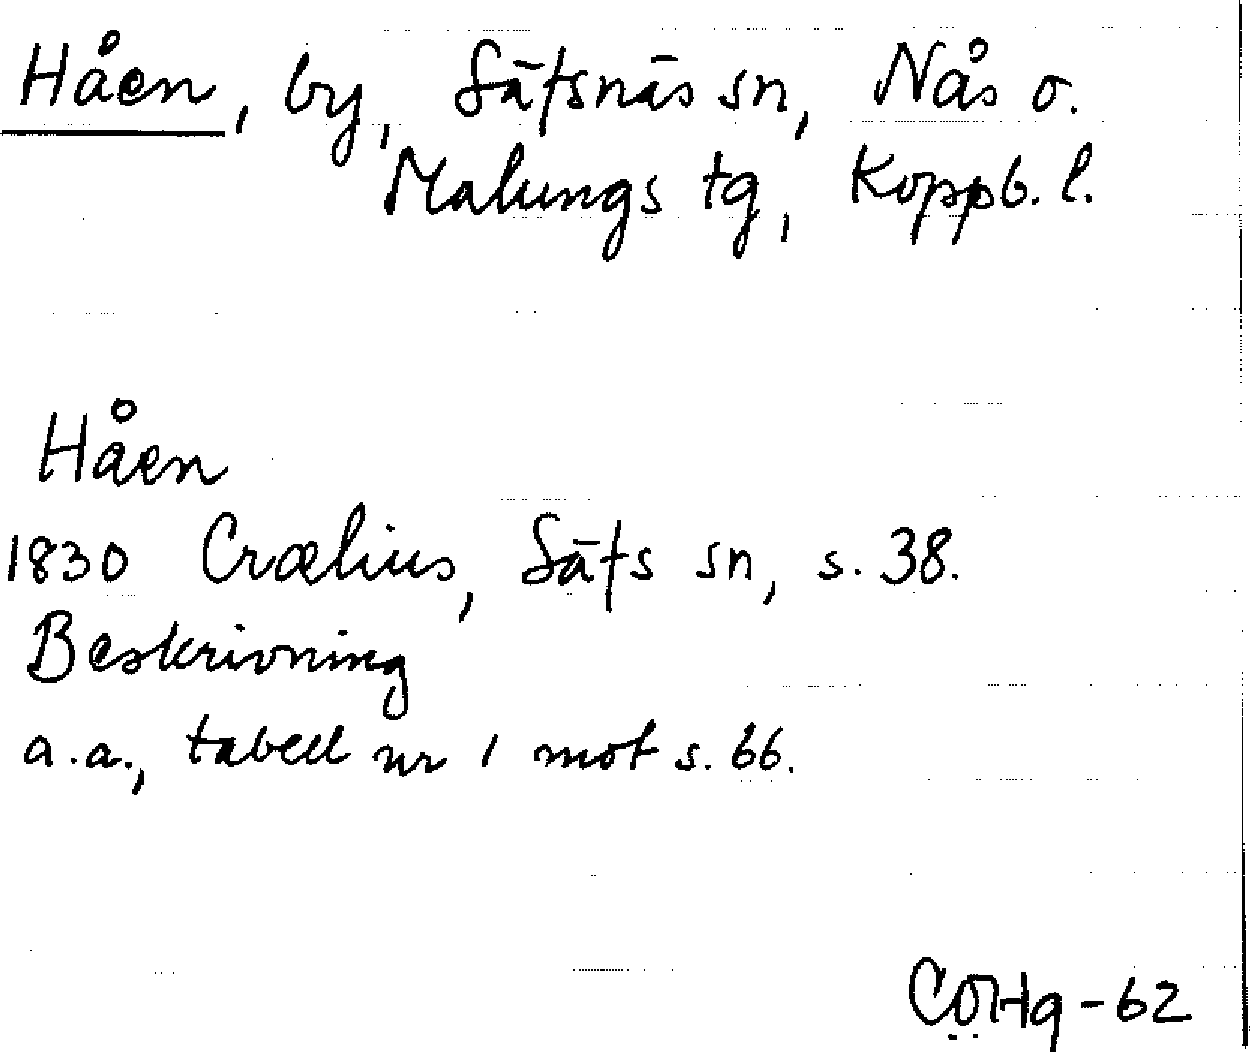 Håen, by, Säfsnäs sn, Nås o.
Malungs tg, Koppb. l.
Håen
1830 Crælius, Säfs sn, s. 38.
Beskrivning
a.a., tabell nr 1 mot s. 66.